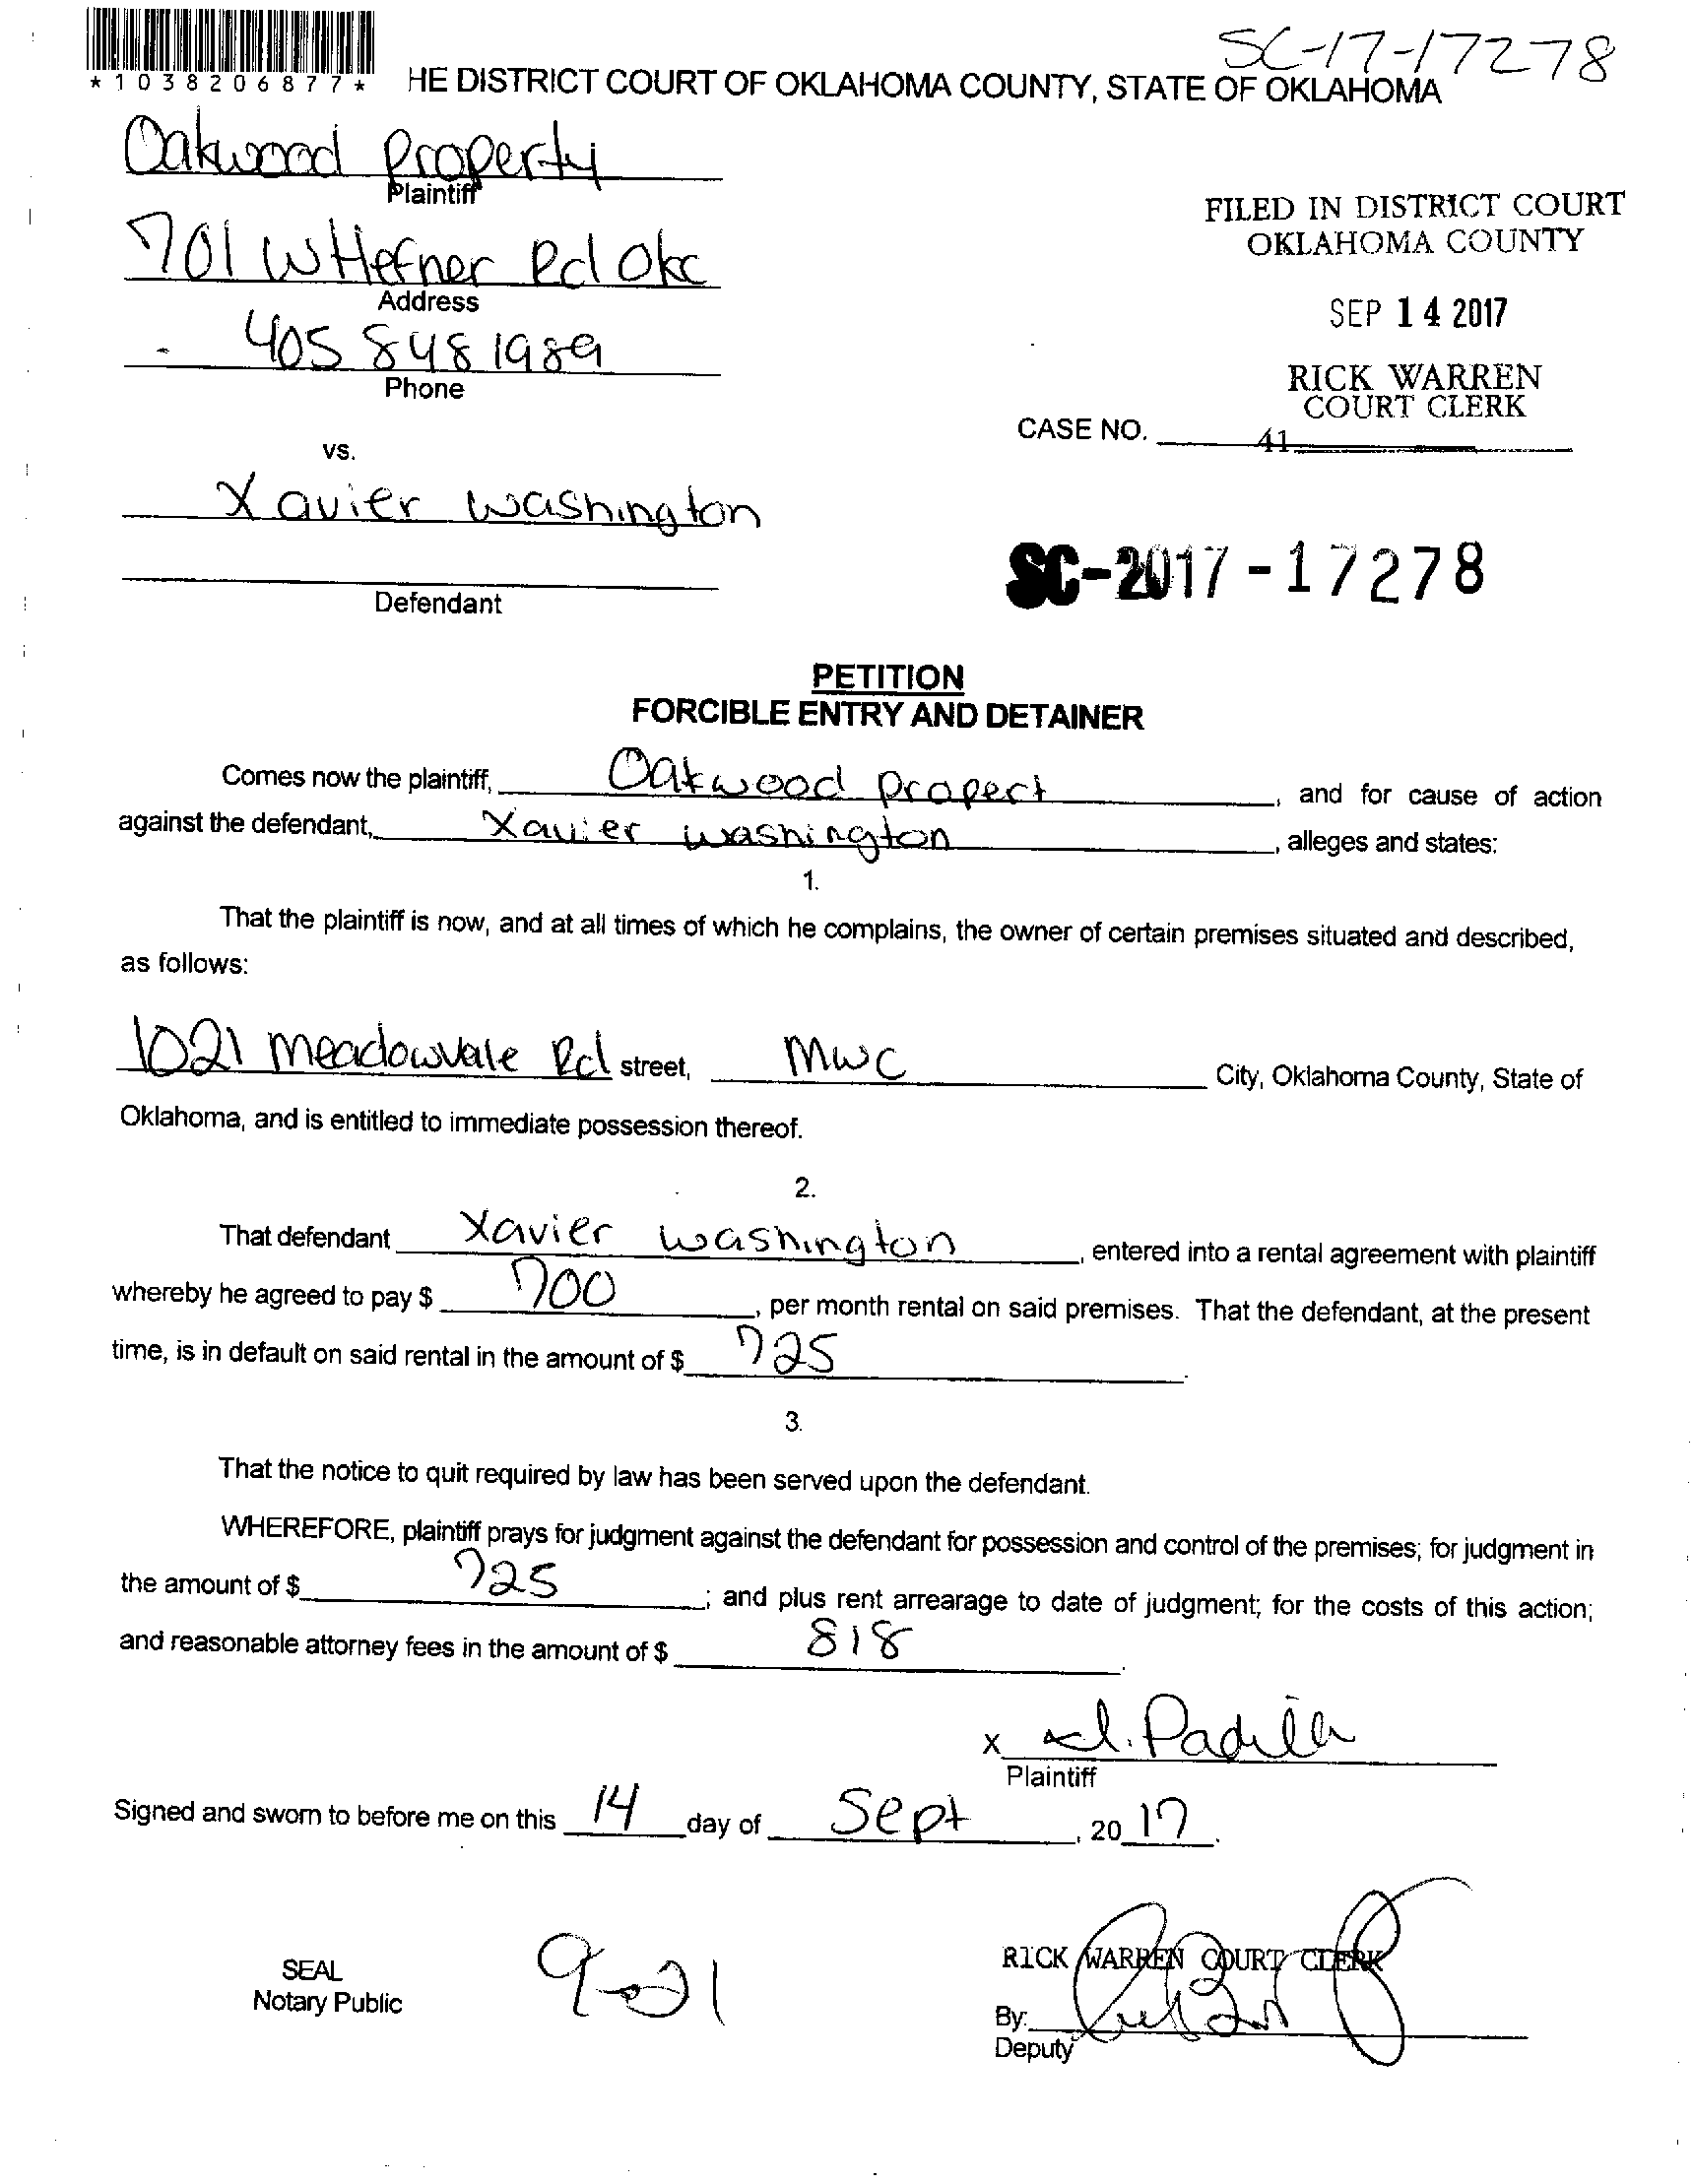 SC-17-17278
*1038206877*
HE DISTRICT COURT OF OKLAHOMA COUNTY, STATE OF OKLAHOMA
Oakwood Property
Plaintiff
701 W Hefner Rd Okc
Address
405 848 1989
Phone
vs.
Xavier Washington
Defendant
FILED IN DISTRICT COURT
OKLAHOMA COUNTY
SEP 14 2017
RICK WARREN
COURT CLERK
CASE NO. 41
SC-2017-17278
PETITION
FORCIBLE ENTRY AND DETAINER
Comes now the plaintiff, Oakwood Propert, and for cause of action
against the defendant, Xavier Washington, alleges and states:
1.
That the plaintiff is now, and at all times of which he complains, the owner of certain premises situated and described,
as follows:
1021 Meadowvale Rd street, MWC City, Oklahoma County, State of
Oklahoma, and is entitled to immediate possession thereof.
2.
That defendant Xavier Washington, entered into a rental agreement with plaintiff
whereby he agreed to pay $ 700, per month rental on said premises. That the defendant, at the present
time, is in default on said rental in the amount of $ 725.
3.
That the notice to quit required by law has been served upon the defendant.
WHEREFORE, plaintiff prays for judgment against the defendant for possession and control of the premises; for judgment in
the amount of $ 725; and plus rent arrearage to date of judgment; for the costs of this action;
and reasonable attorney fees in the amount of $ 818.
x Padilla
Plaintiff
Signed and sworn to before me on this 14 day of Sept, 20 17.
SEAL
Notary Public
9-21
RICK WARREN COURT CLERK
By:
Deputy